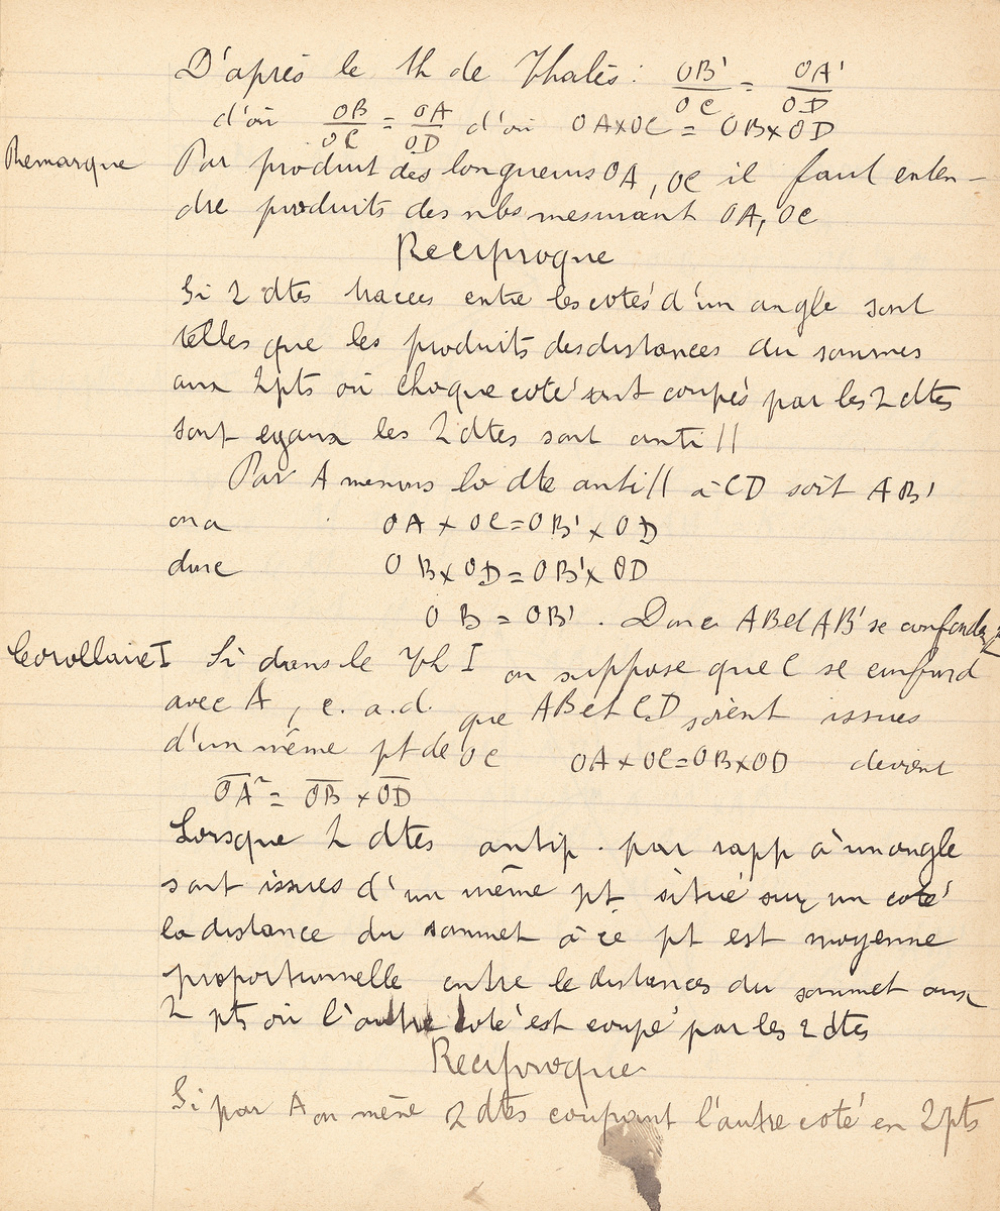 D'après le th de Thalès : OB'/OC = OA'/OD
d'où OB/OC = OA/OD d'où OA×OC = OB×OD
Remarque Par produit des longueurs OA, OC il faut enten-
dre produits des nbs mesurant OA, OC
Reciproque
Si 2 dtes tracées entre les cotés d'un angle sont
telles que les produits des distances du sommes
aux 2 pts où chaque coté sont coupés par les 2 dtes
sont egaux les 2 dtes sont anti //
Par A menons la dte anti // à CD soit AB'
on a OA × OC = OB' × OD
donc OB × OD = OB' × OD
OB = OB' . Donc AB et AB' se confondent
Corollaire I Si dans le Th I on suppose que C se confond
avec A, c. a. d. que AB et CD soient issues
d'un même pt de OC OA × OC = OB × OD devient
OA² = OB × OD
Lorsque 2 dtes antip. par rapp à un angle
sont issues d'un même pt situé sur un coté
la distance du sommet à ce pt est moyenne
proportionnelle entre le distances du sommet aux
2 pts où l'autre coté est coupé par les 2 dtes
Reciproque
Si par A on mène 2 dtes coupant l'autre coté en 2 pts